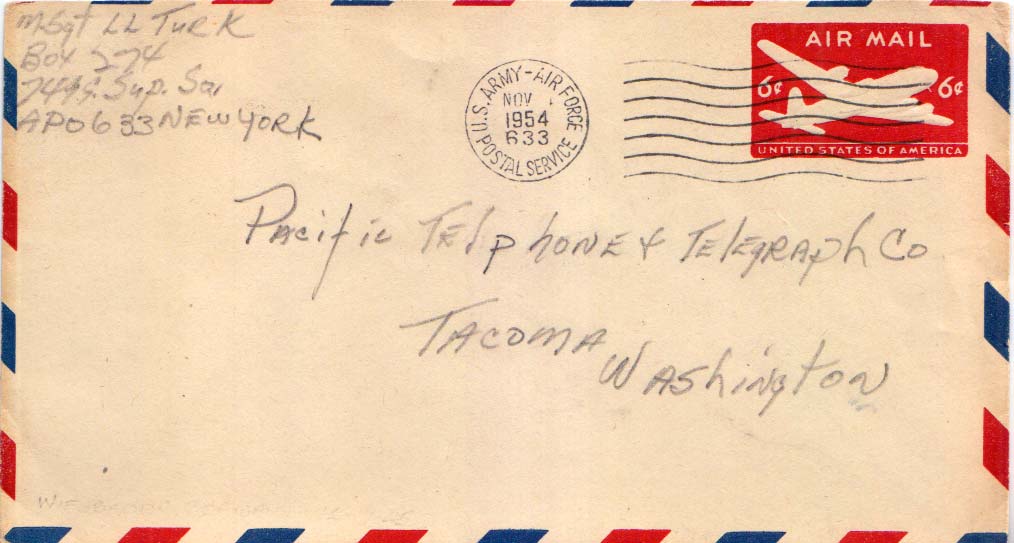 M/Sgt LL Turk
Box 274
Sup.
APO 633 NEW YORK
U.S. ARMY-AIR FORCE
NOV
1954
633
POSTAL SERVICE
AIR MAIL
6¢ 6¢
UNITED STATES OF AMERICA
Pacific TElephone & TElEgraph Co
TACOMA
WAshington